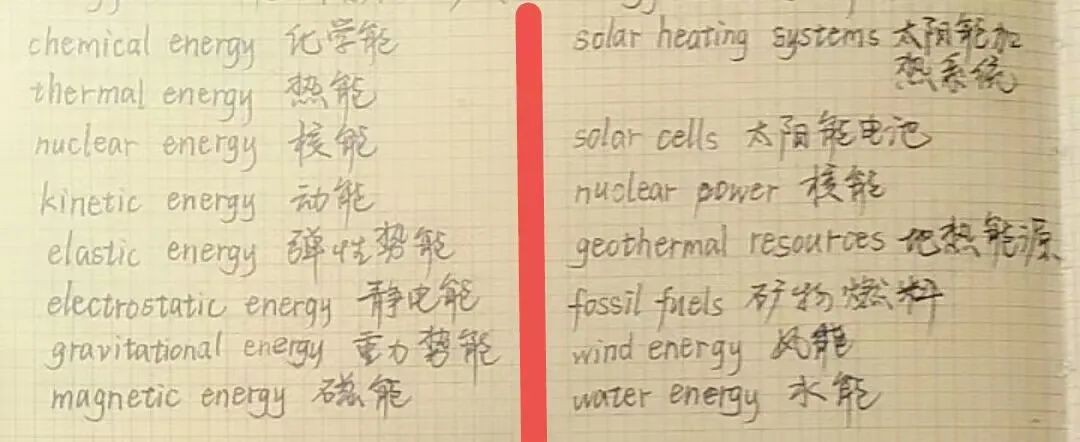 chemical energy 化学能
thermal energy 热能
nuclear energy 核能
kinetic energy 动能
elastic energy 弹性势能
electrostatic energy 静电能
gravitational energy 重力势能
magnetic energy 磁能
solar heating systems 太阳能加
热系统
solar cells 太阳能电池
nuclear power 核能
geothermal resources 地热能源
fossil fuels 矿物燃料
wind energy 风能
water energy 水能